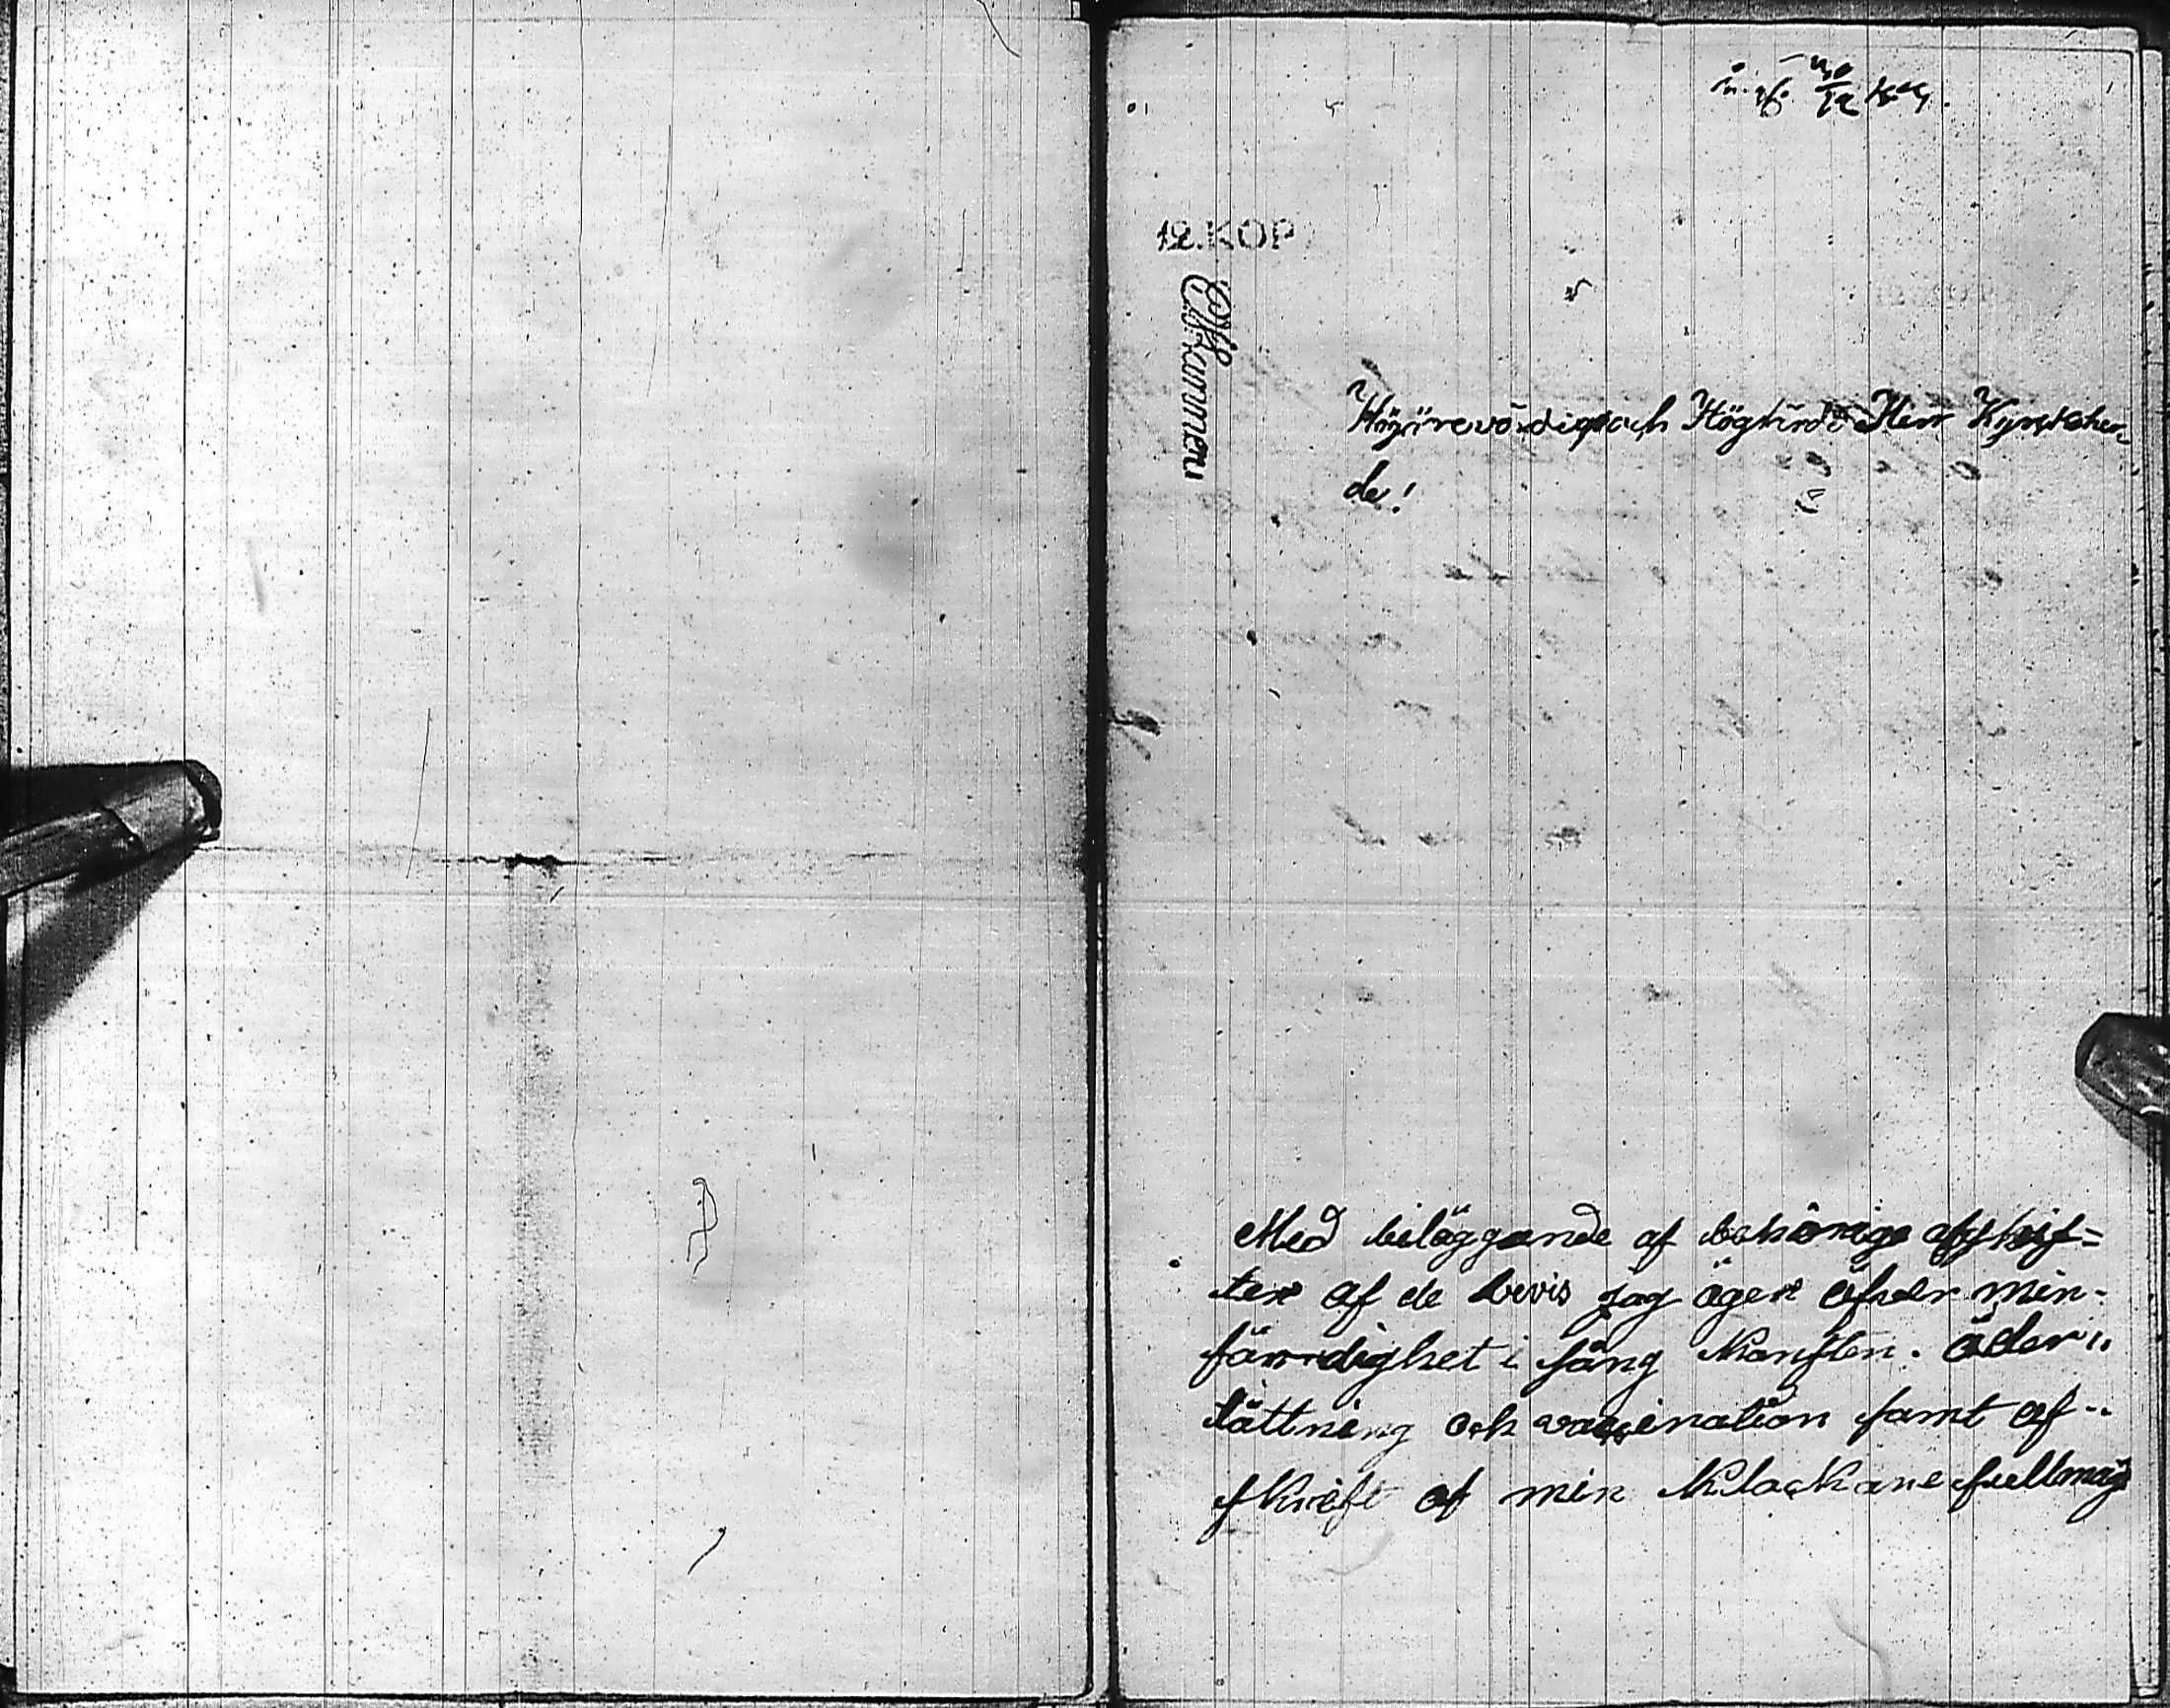 12.KOP
Högärevördig och Höglärde Herr Kyrckoher-
de!
Med biläggande af behörige afskrif=
ter af de bevis jag äger öfver min
färdighet i sång konsten. åder"
lättning och vaccination samt af-
skrift af min Klockare fullmäg